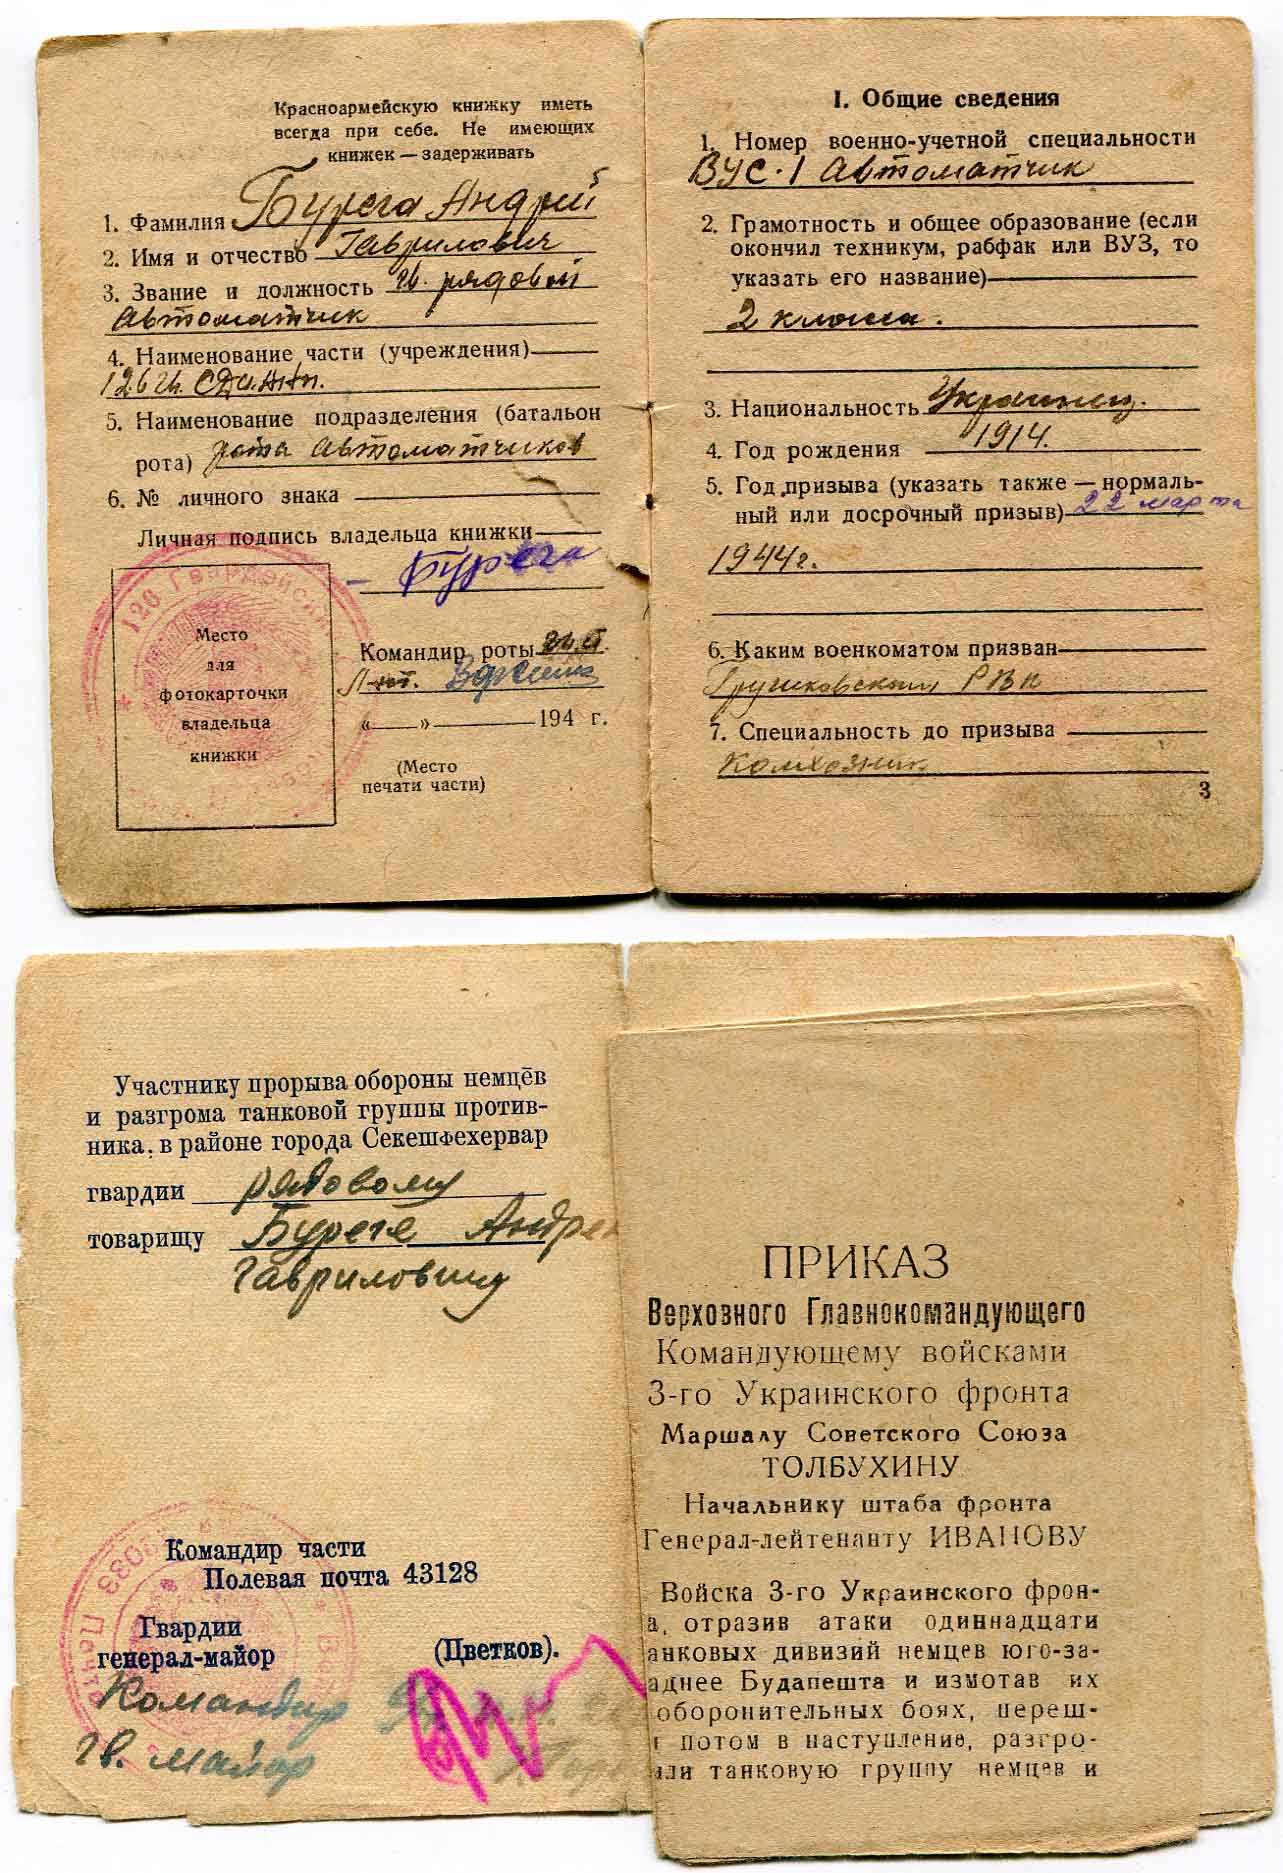 Красноармейскую книжку иметь
всегда при себе. Не имеющих
книжек — задерживать
1. Фамилия Бурега Андрей
2. Имя и отчество Гаврилович
3. Звание и должность гв. рядовой
Автоматчик
4. Наименование части (учреждения)
126 гв.
5. Наименование подразделения (батальон
рота) рота автоматчиков
6. № личного знака
Личная подпись владельца книжки
Бурега
Место
для
фотокарточки
владельца
книжки
Командир роты
« » 194 г.
(Место
печати части)
I. Общие сведения
1. Номер военно-учетной специальности
ВУС-1 Автоматчик
2. Грамотность и общее образование (если
окончил техникум, рабфак или ВУЗ, то
указать его название)
2 класса.
3. Национальность Украинец.
4. Год рождения 1914.
5. Год призыва (указать также — нормаль-
ный или досрочный призыв) 22 марта
1944г.
6. Каким военкоматом призван
РВК
7. Специальность до призыва
Колхозник
3
Участнику прорыва обороны немцев
и разгрома танковой группы против-
ника в районе города Секешфехервар
гвардии рядовому
товарищу Буреге Андре
Гавриловичу
Командир части
Полевая почта 43128
Гвардии
генерал-майор (Цветков).
Командир
гв. майор
ПРИКАЗ
Верховного Главнокомандующего
Командующему войсками
3-го Украинского фронта
Маршалу Советского Союза
ТОЛБУХИНУ
Начальнику штаба фронта
Генерал-лейтенанту ИВАНОВУ
Войска 3-го Украинского фрон-
а, отразив атаки одиннадцати
анковых дивизий немцев юго-за-
аднее Будапешта и измотав их
оборонительных боях, переш-
и потом в наступление, разгро-
или танковую группу немцев и